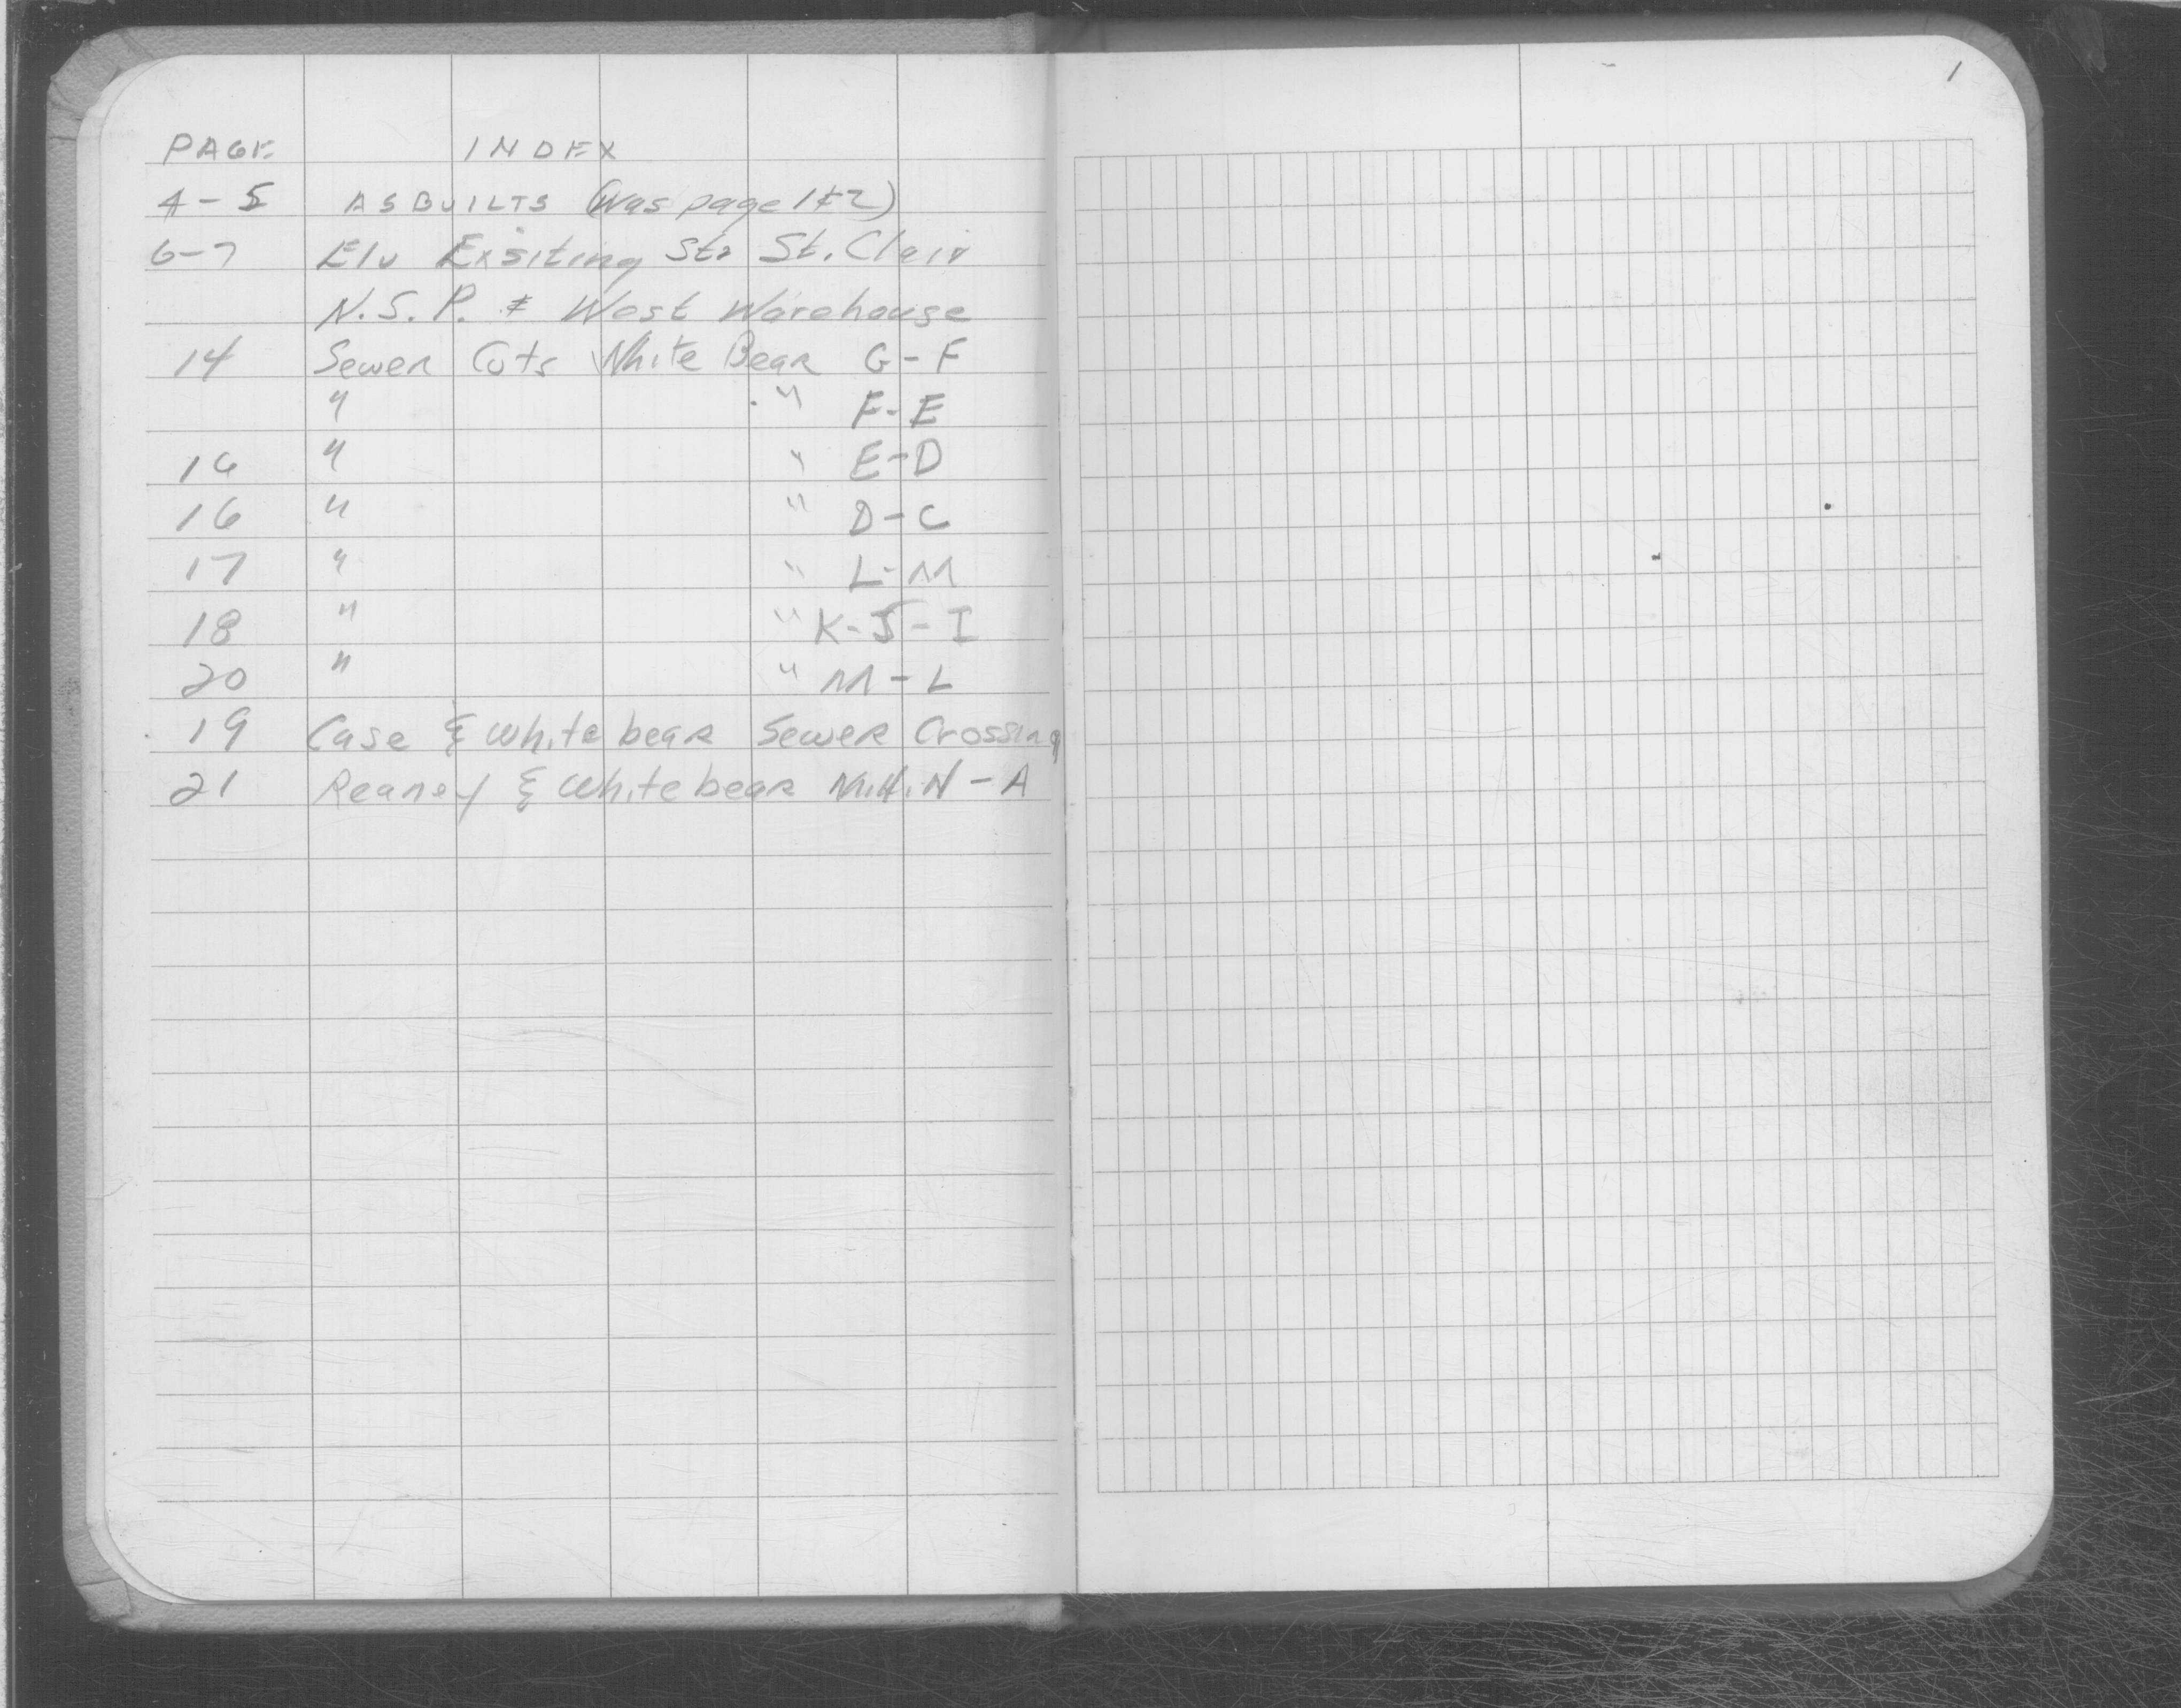 PAGE INDEX
4-5 ASBUILTS (Was page 1 & 2)
6-7 Elv Exsiting Str St. Clair
N.S.P. & West Warehouse
14 Sewer Cuts White Bear G-F
" " F-E
16 " " E-D
16 " " D-C
17 " " L-M
18 " " K-J-I
20 " " M-L
19 Case & white bear Sewer Crossing
21 Reaney & white bear M.H. N-A
1